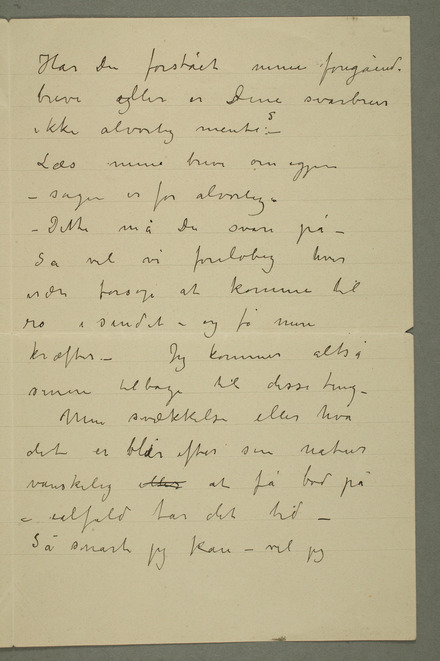 Har Du forstået mine foregåend.
breve eller er Dine svarbreve
ikke alvorlig mente? –
Læs mine breve om igjen
– sagen er for alvorlig –
– Dette må Du svare på –
Så vil vi foreløbig hver
især forsøge at komme til
ro i sindet – og få mere
kræfter – Jeg kommer altså
senere tilbage til disse ting –
Min svækkelse eller hva
det er blir efter sin natur
vanskelig at få bod på
– ialfald tar det tid –
Så snart jeg kan – vil jeg